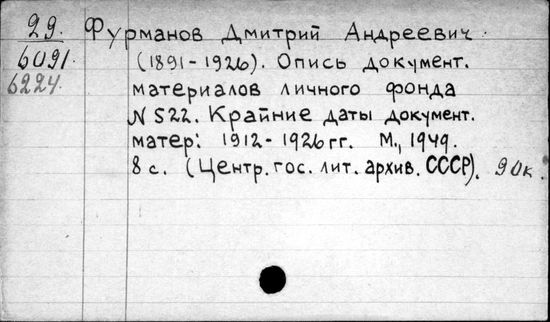 29. Фурманов Дмитрий Андреевич
6091. (1891-1926). Опись документ.
6224. материалов личного фонда
N 522. Крайние даты документ.
матер: 1912-1926 гг. М., 1949.
8 с. (Центр. гос. лит. архив. СССР). 90к.